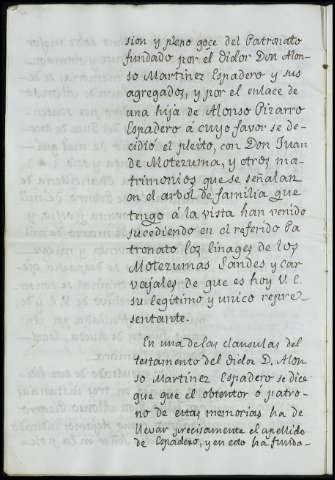 sion y pleno goce del Patronato
fundado por el Oidor Don Alon-
so Martinez Espadero y sus
agregados, y por el enlace de
una hija de Alonso Pizarro
Espadero á cuyo favor se de-
cidió el pleito, con Don Juan
de Motezuma, y otros ma-
trimonios que se señalan
en el arbol de familia que
tengo á la vista han venido
sucediendo en el referido Pa
tronato los linages de los
Motezumas Landes y Car-
vajales de que es hoy V.E.
su legitimo y unico repre-
sentante.
En una de las clausulas del
testamento del Oidor D. Alon
so Martinez Espadero se dice
que que el obtentor ó patro-
no de estas memorias ha de
llevar precisamente el apellido
de Espadero, y en esto ha funda-